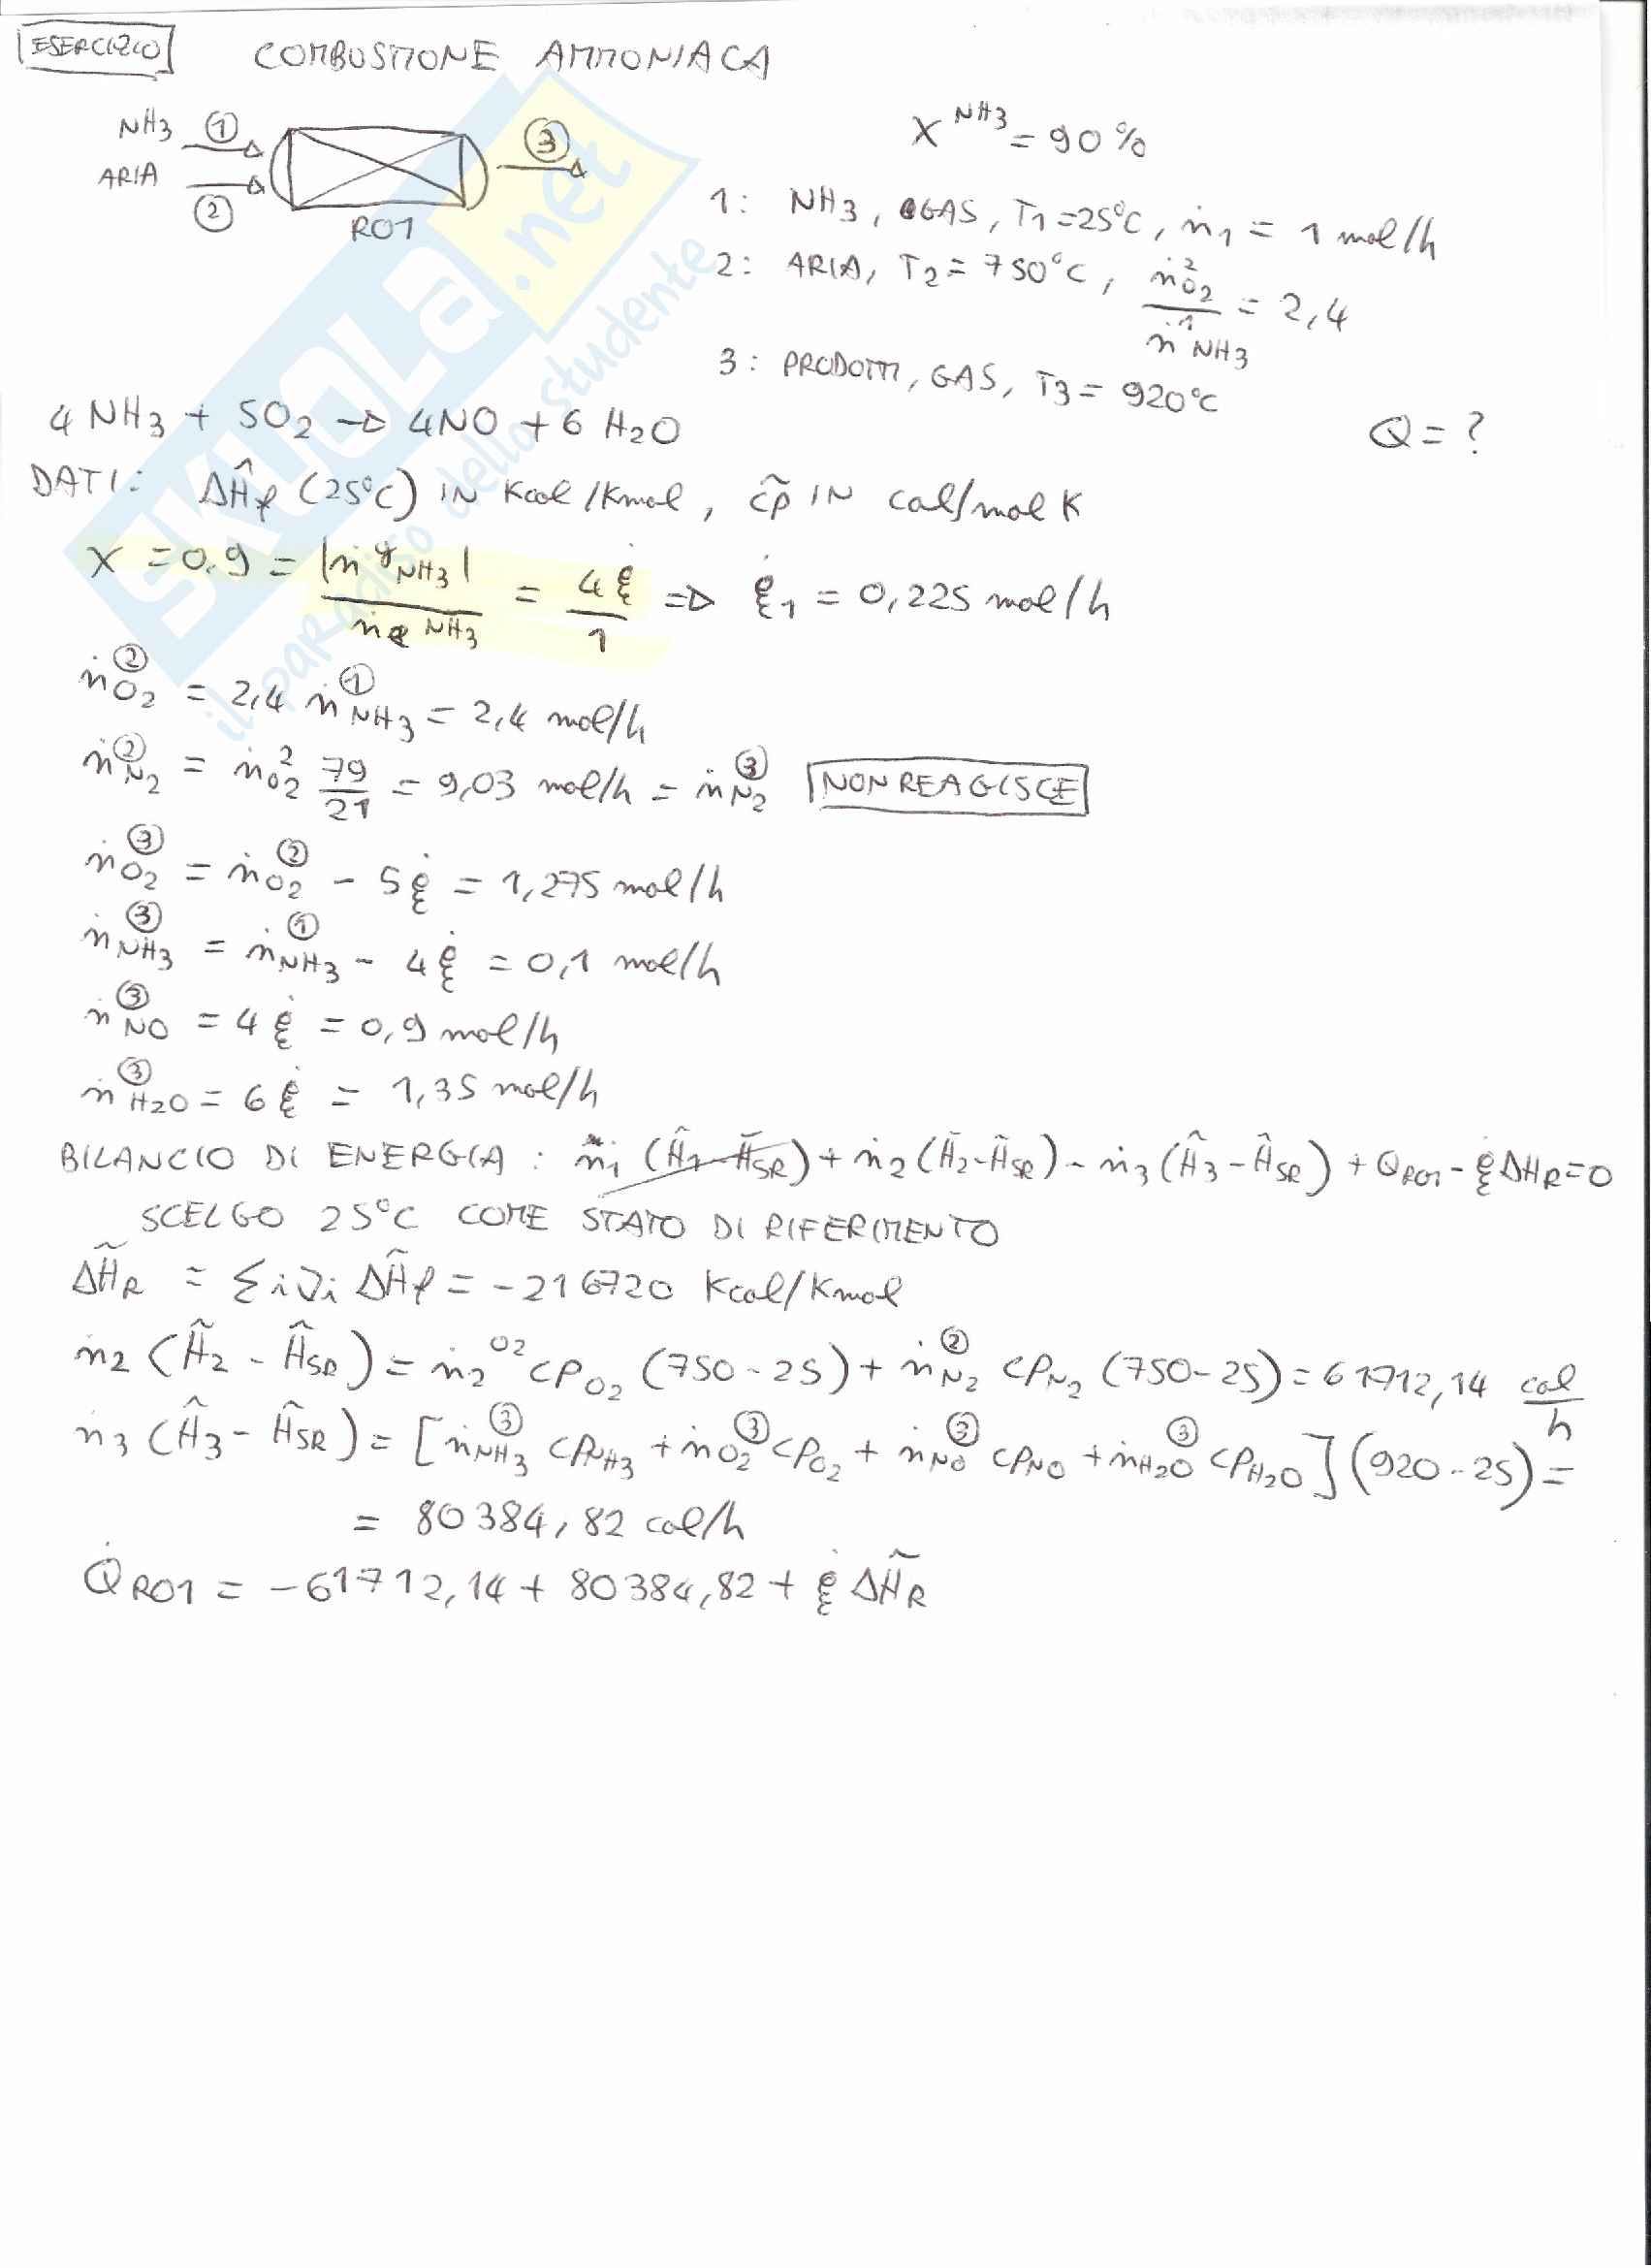 ESERCIZIO COMBUSTIONE AMMONIACA
NH3 ① ③
ARIA ② R01
X^NH3 = 90%
1: NH3, GAS, T1=25°C, ṅ1 = 1 mol/h
2: ARIA, T2=750°C, ṅ²O2 / ṅ¹NH3 = 2,4
3: PRODOTTI, GAS, T3=920°C
Q=?
4 NH3 + 5O2 → 4NO + 6 H2O
DATI: ΔĤf (25°C) IN Kcal/Kmol, c̃p IN cal/mol K
X = 0.9 = |ṅ^g NH3| / ṅe NH3 = 4ξ̇ / 1 ⇒ ξ̇1 = 0,225 mol/h
ṅO2② = 2,4 ṅNH3① = 2,4 mol/h
ṅN2② = ṅO2² 79/21 = 9,03 mol/h = ṅN2③ NON REAGISCE
ṅO2③ = ṅO2② - 5ξ̇ = 1,275 mol/h
ṅNH3③ = ṅNH3① - 4ξ̇ = 0,1 mol/h
ṅNO③ = 4ξ̇ = 0,9 mol/h
ṅH2O③ = 6ξ̇ = 1,35 mol/h
BILANCIO DI ENERGIA: ṅ1 (H̃1-H̃SR) + ṅ2 (H̃2-H̃SR) - ṅ3 (Ĥ3-ĤSR) + QR01 - ξ̇ΔHR=0
SCELGO 25°C COME STATO DI RIFERIMENTO
ΔH̃R = Σi νi ΔH̃f = -216720 Kcal/Kmol
ṅ2 (H̃2 - ĤSR) = ṅ2^O2 cPO2 (750-25) + ṅN2② cPN2 (750-25) = 61712,14 cal/h
ṅ3 (Ĥ3 - ĤSR) = [ṅNH3③ cPNH3 + ṅO2③ cPO2 + ṅNO③ cPNO + ṅH2O③ cPH2O] (920-25) =
= 80384,82 cal/h
Q̇R01 = -61712,14 + 80384,82 + ξ̇ ΔH̃R
SKUOLA.net
il paradiso dello studente